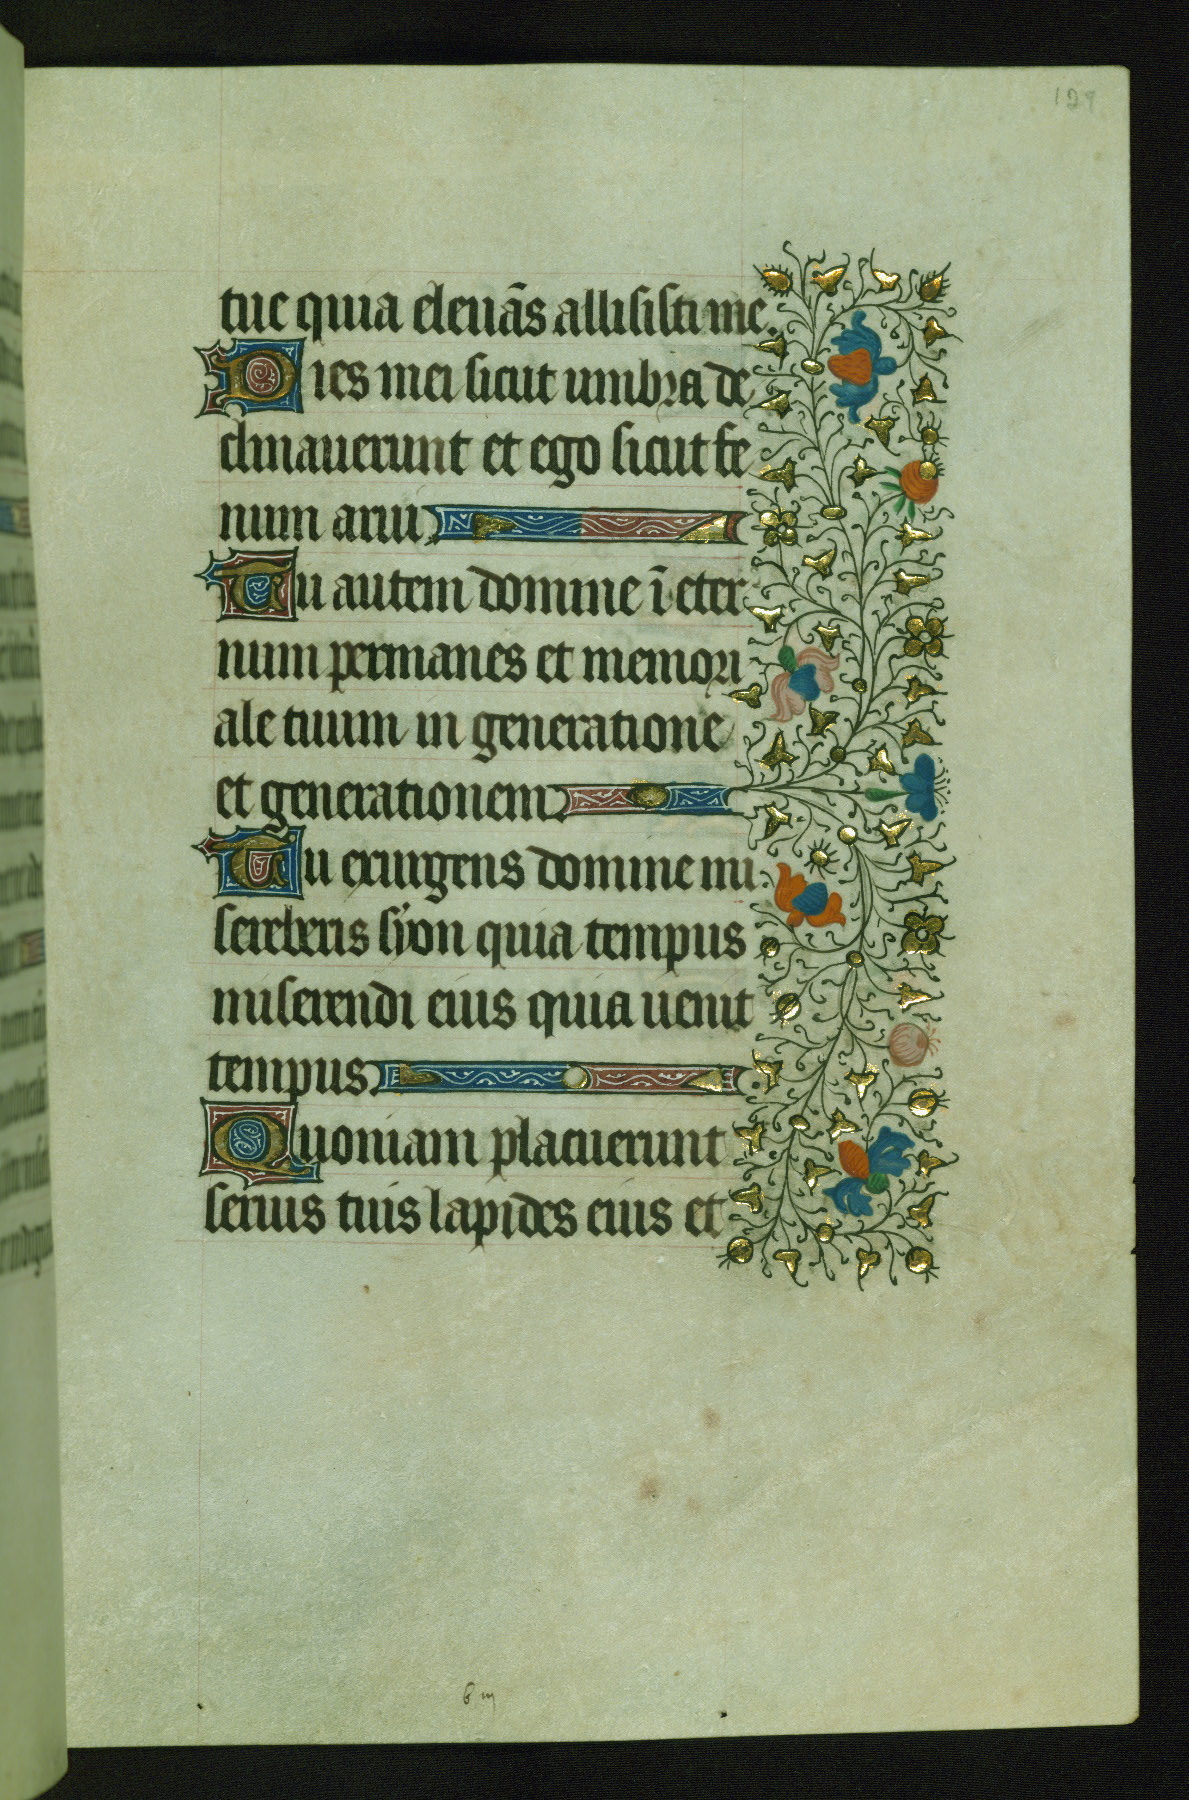 129
tue quia eleuãs allisisti me.
Dies mei sicut umbra de
clinauerunt et ego sicut fe
num arui
Tu autem domine ĩ eter
num permanes et memori
ale tuum in generatione
et generationem
Tu exurgens domine mi
sereberis syon quia tempus
miserendi eius quia uenit
tempus
Quoniam placuerunt
seruis tuis lapides eius et